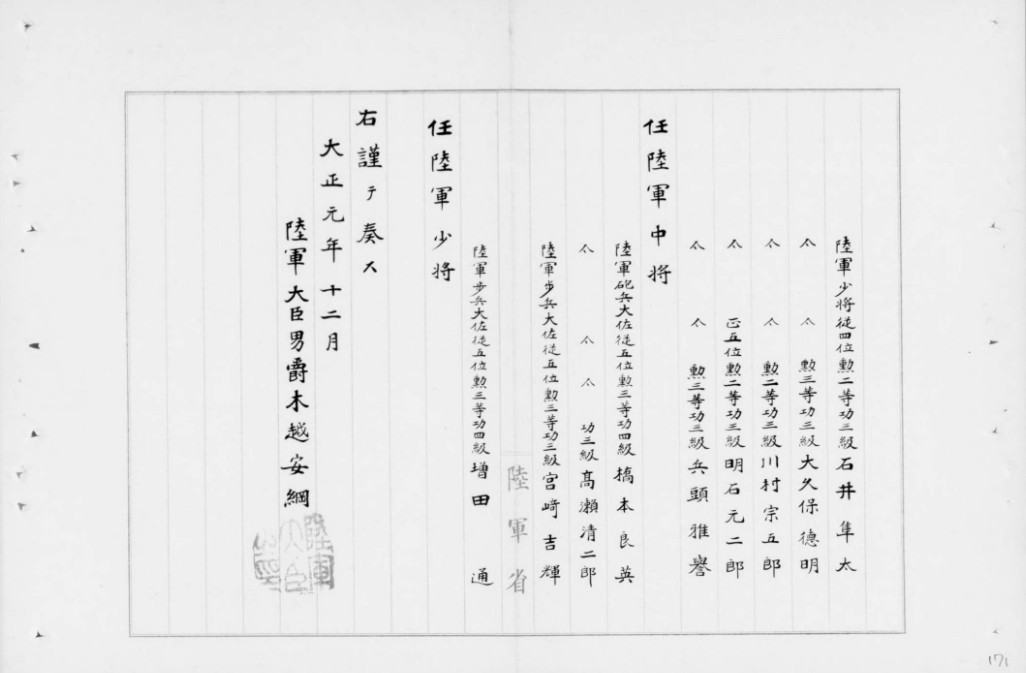 陸軍少将従四位勲二等功三級石井隼太
仝 仝 勲三等功三級大久保徳明
仝 仝 勲二等功三級川村宗五郎
仝 正五位勲二等功三級明石元二郎
仝 仝 勲三等功三級兵頭雅誉
任陸軍中将
陸軍砲兵大佐従五位勲三等功四級橋本良英
仝 仝 仝 功三級髙瀬清二郎
陸軍歩兵大佐従五位勲三等功三級宮崎吉輝
陸軍省
陸軍歩兵大佐従五位勲三等功四級増田 通
任陸軍少将
右謹テ奏ス
大正元年十二月
陸軍大臣男爵木越安綱
陸軍大臣之印
171